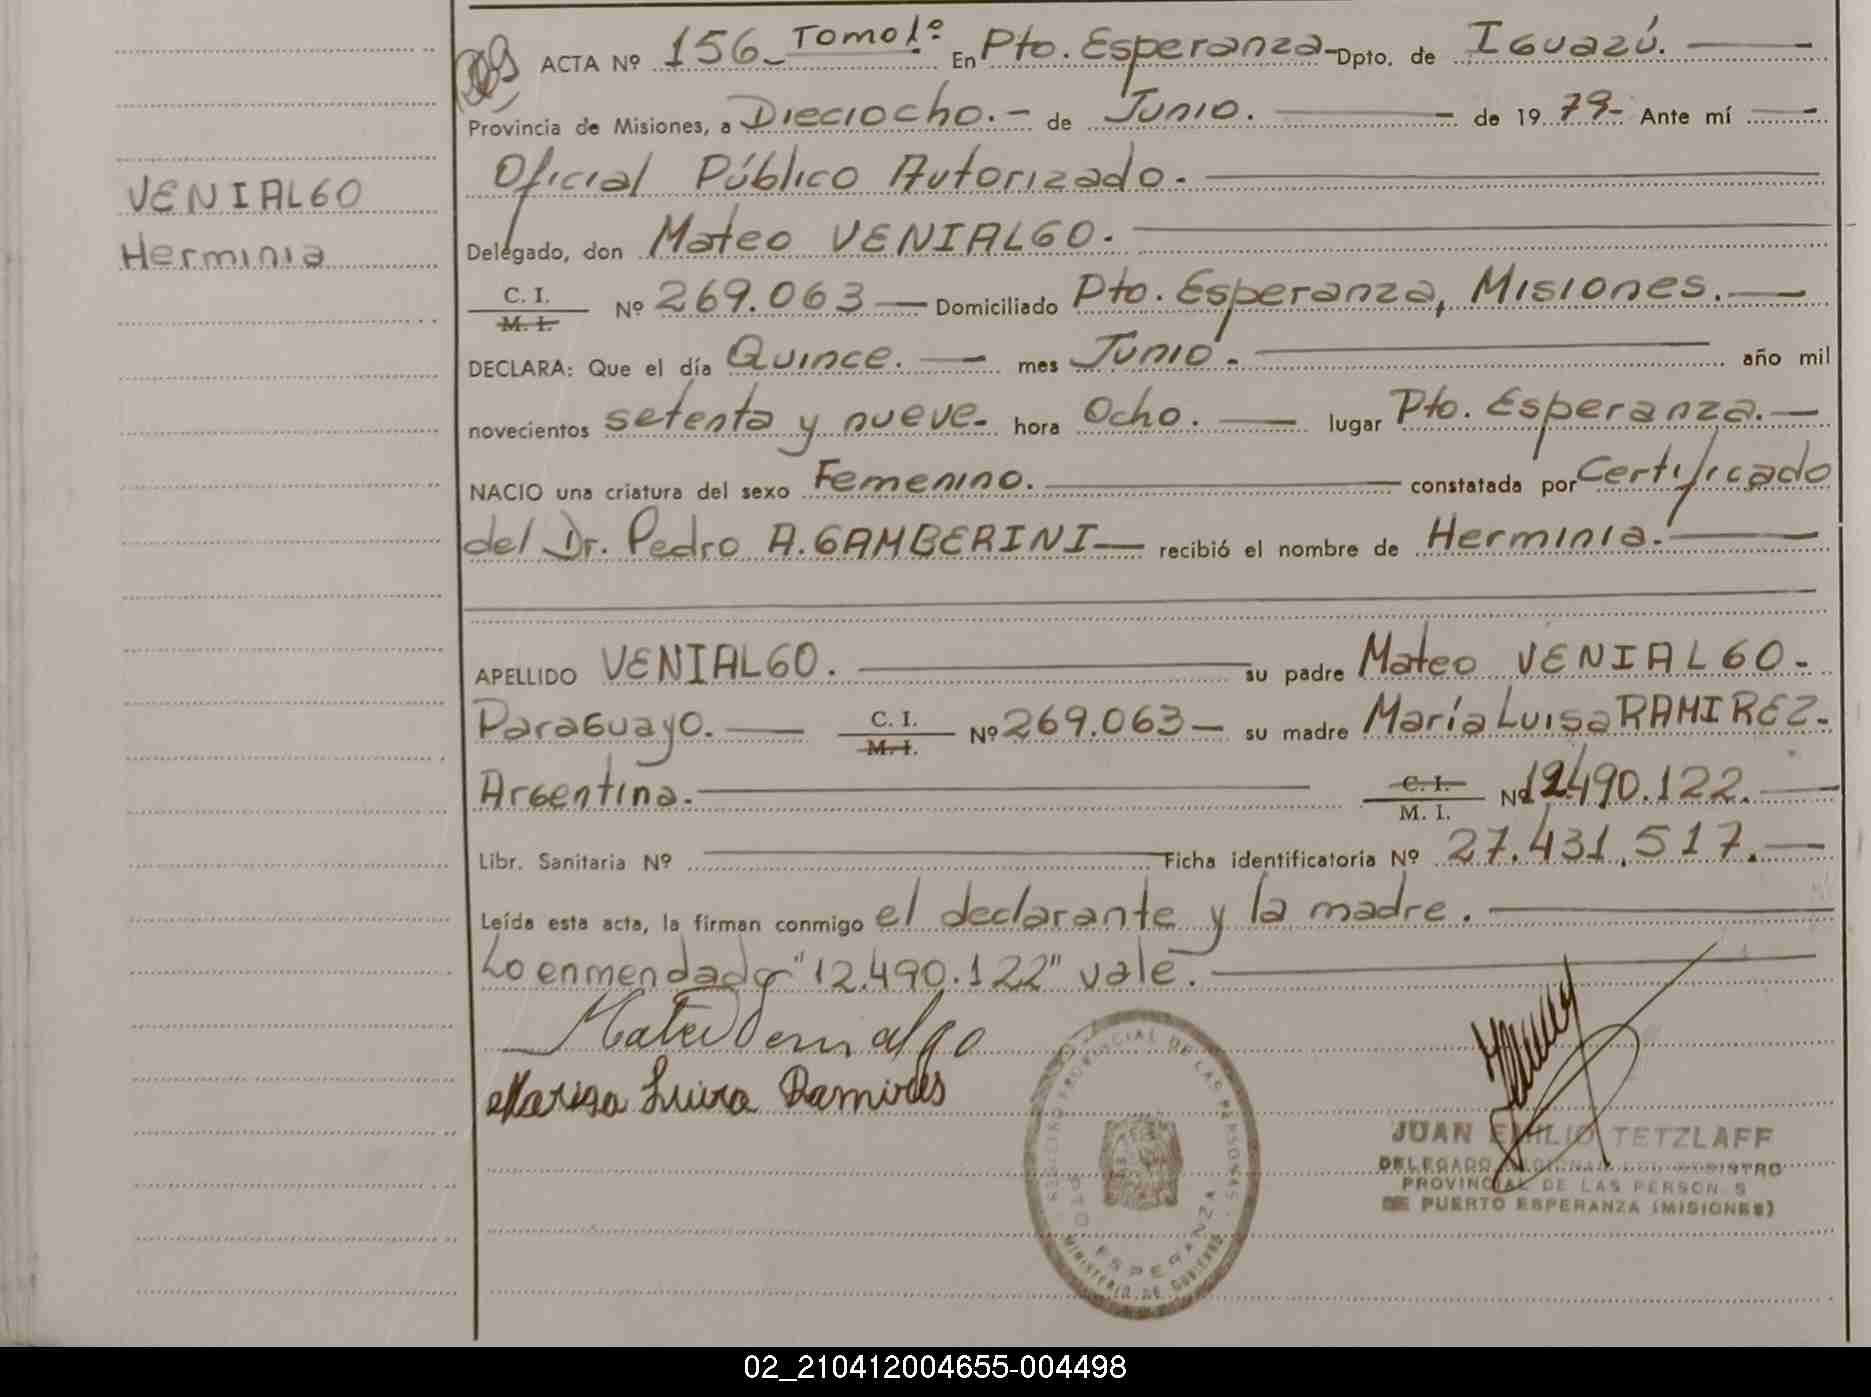 ACTA Nº 156_ Tomo 1º En Pto. Esperanza - Dpto. de Iguazú.
Provincia de Misiones, a Dieciocho.- de Junio. de 1979- Ante mí
Oficial Público Autorizado.
VENIALGO
Herminia
Delegado, don Mateo VENIALGO.
C. I.
M. I. Nº 269.063 Domiciliado Pto. Esperanza, Misiones.
DECLARA: Que el día Quince. mes Junio. año mil
novecientos setenta y nueve- hora Ocho. lugar Pto. Esperanza.
NACIO una criatura del sexo Femenino. constatada por Certificado
del Dr. Pedro A. GAMBERINI recibió el nombre de Herminia.
APELLIDO VENIALGO. su padre Mateo VENIALGO.
Paraguayo. C. I.
M. I. Nº 269.063 su madre María Luisa RAMIREZ.
Argentina. C. I.
M. I. Nº 12.490.122.
Libr. Sanitaria Nº Ficha identificatoria Nº 27.431.517.
Leída esta acta, la firman conmigo el declarante y la madre.
Lo enmendado "12.490.122" vale.
Mateo Venialgo
Marisa Luisa Ramires
REGISTRO PROVINCIAL DE LAS PERSONAS
PTO ESPERANZA
MINISTERIO DE GOBIERNO
JUAN EMILIO TETZLAFF
DELEGADO REGISTRO
PROVINCIAL DE LAS PERSONAS
DE PUERTO ESPERANZA (MISIONES)
02_210412004655-004498